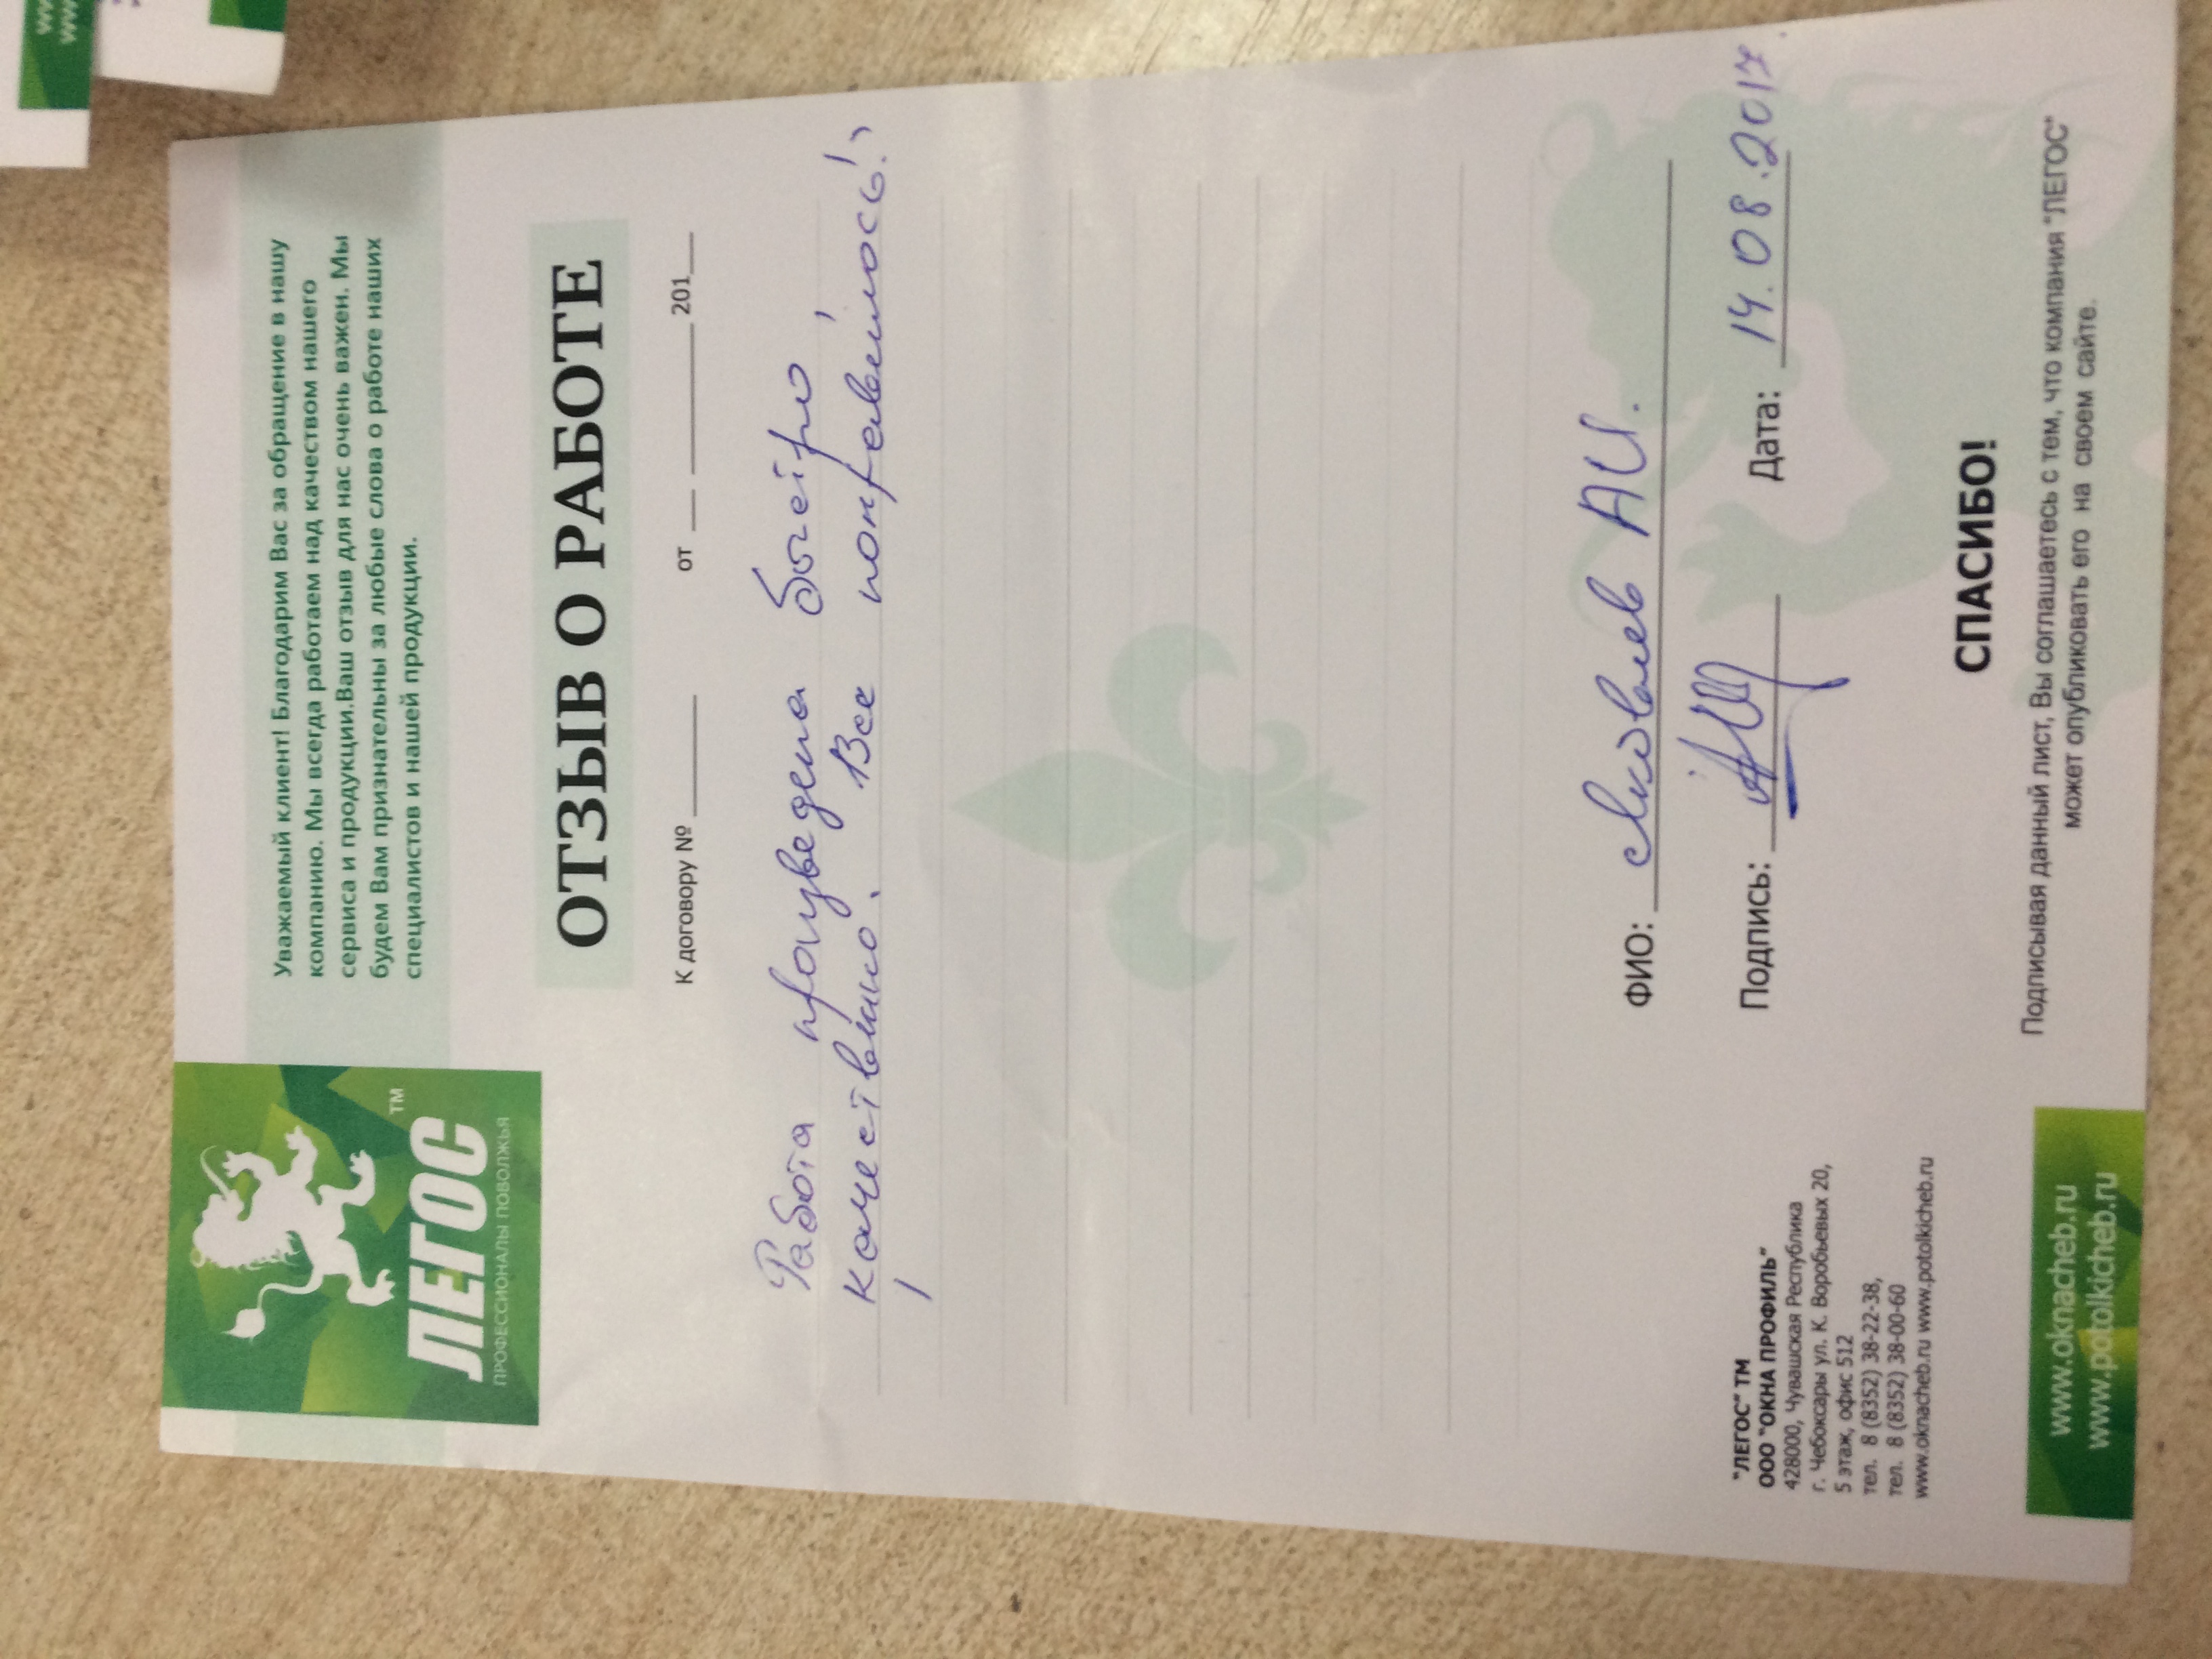 ЛЕГОС™
ПРОФЕССИОНАЛЫ ПОВОЛЖЬЯ
Уважаемый клиент! Благодарим Вас за обращение в нашу
компанию. Мы всегда работаем над качеством нашего
сервиса и продукции.Ваш отзыв для нас очень важен. Мы
будем Вам признательны за любые слова о работе наших
специалистов и нашей продукции.
ОТЗЫВ О РАБОТЕ
К договору № ______ от __ ________ 201__
Работа произведена быстро,
качественно. Все понравилось!
ФИО: Яковлев А.И.
Подпись: Дата: 14.08.2017
"ЛЕГОС" ТМ
ООО "ОКНА ПРОФИЛЬ"
428000, Чувашская Республика
г. Чебоксары ул. К. Воробьевых 20,
5 этаж, офис 512
тел. 8 (8352) 38-22-38,
тел. 8 (8352) 38-00-60
www.oknacheb.ru www.potolkicheb.ru
СПАСИБО!
Подписывая данный лист, Вы соглашаетесь с тем, что компания "ЛЕГОС"
может опубликовать его на своем сайте.
www.oknacheb.ru
www.potolkicheb.ru